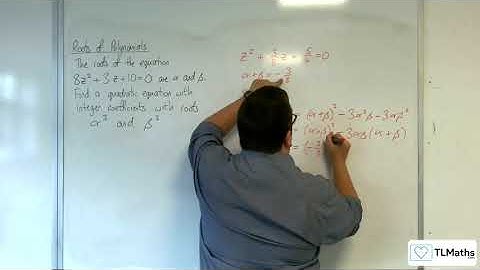 Roots of Polynomials
The roots of the equation
8z² + 3z + 10 = 0 are α and β.
Find a quadratic equation with
integer coefficients with roots
α³ and β³
α + β = - 3/8
(α+β)³ - 3α²β - 3αβ²
= (α+β)³ - 3αβ(α+β)
TLMaths